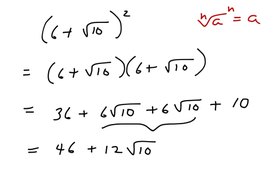 (6 + √10)²
ⁿ√aⁿ = a
= (6 + √10)(6 + √10)
= 36 + 6√10 + 6√10 + 10
= 46 + 12√10